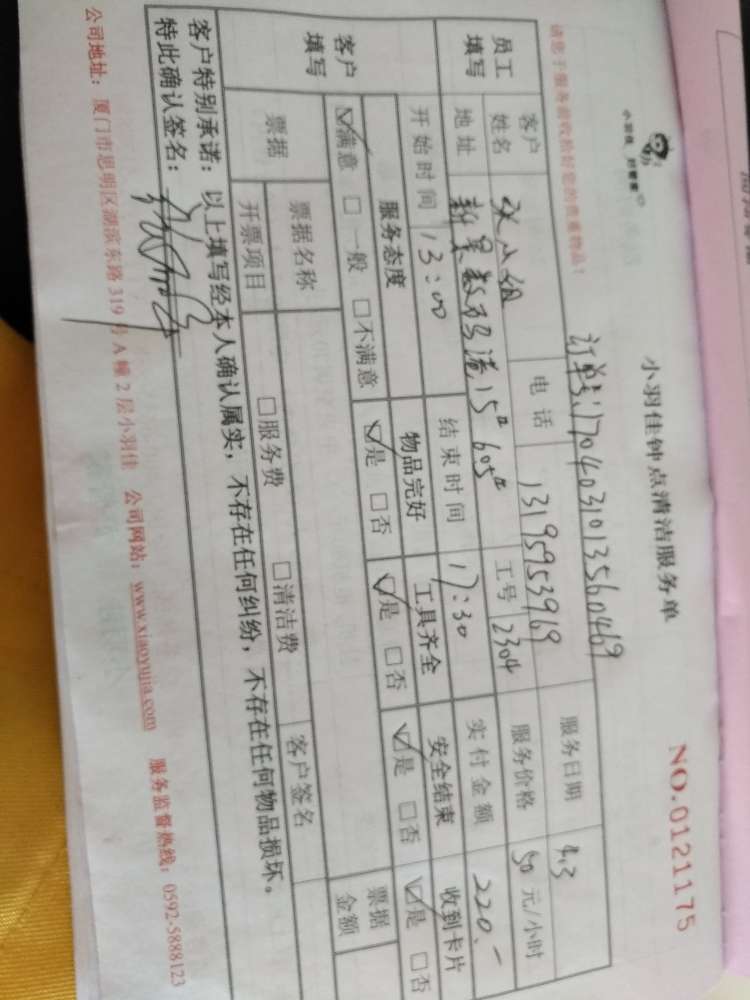 小羽佳 好管家
小羽佳钟点清洁服务单
NO.0121175
订单号:17040310135560469
请您于服务前收拾好您的贵重物品!
员工填写 客户姓名 小姐 电话 13195953969 服务日期 4.3
地址 新景数码港15# 605# 工号 2304 服务价格 50 元/小时
客户填写 开始时间 13:00 结束时间 17:30 实付金额 220.-
服务态度 物品完好 工具齐全 安全结束 收到卡片
☑满意 □一般 □不满意 ☑是 □否 ☑是 □否 ☑是 □否 ☑是 □否
票据 票据名称 □服务费 □清洁费 客户签名 票据金额
开票项目
客户特别承诺:以上填写经本人确认属实,不存在任何纠纷,不存在任何物品损坏。
特此确认签名:
公司地址:厦门市思明区湖滨东路 319 号 A 幢 2 层小羽佳 公司网站:www.xiaoyujia.com 服务监督热线:0592-5888123